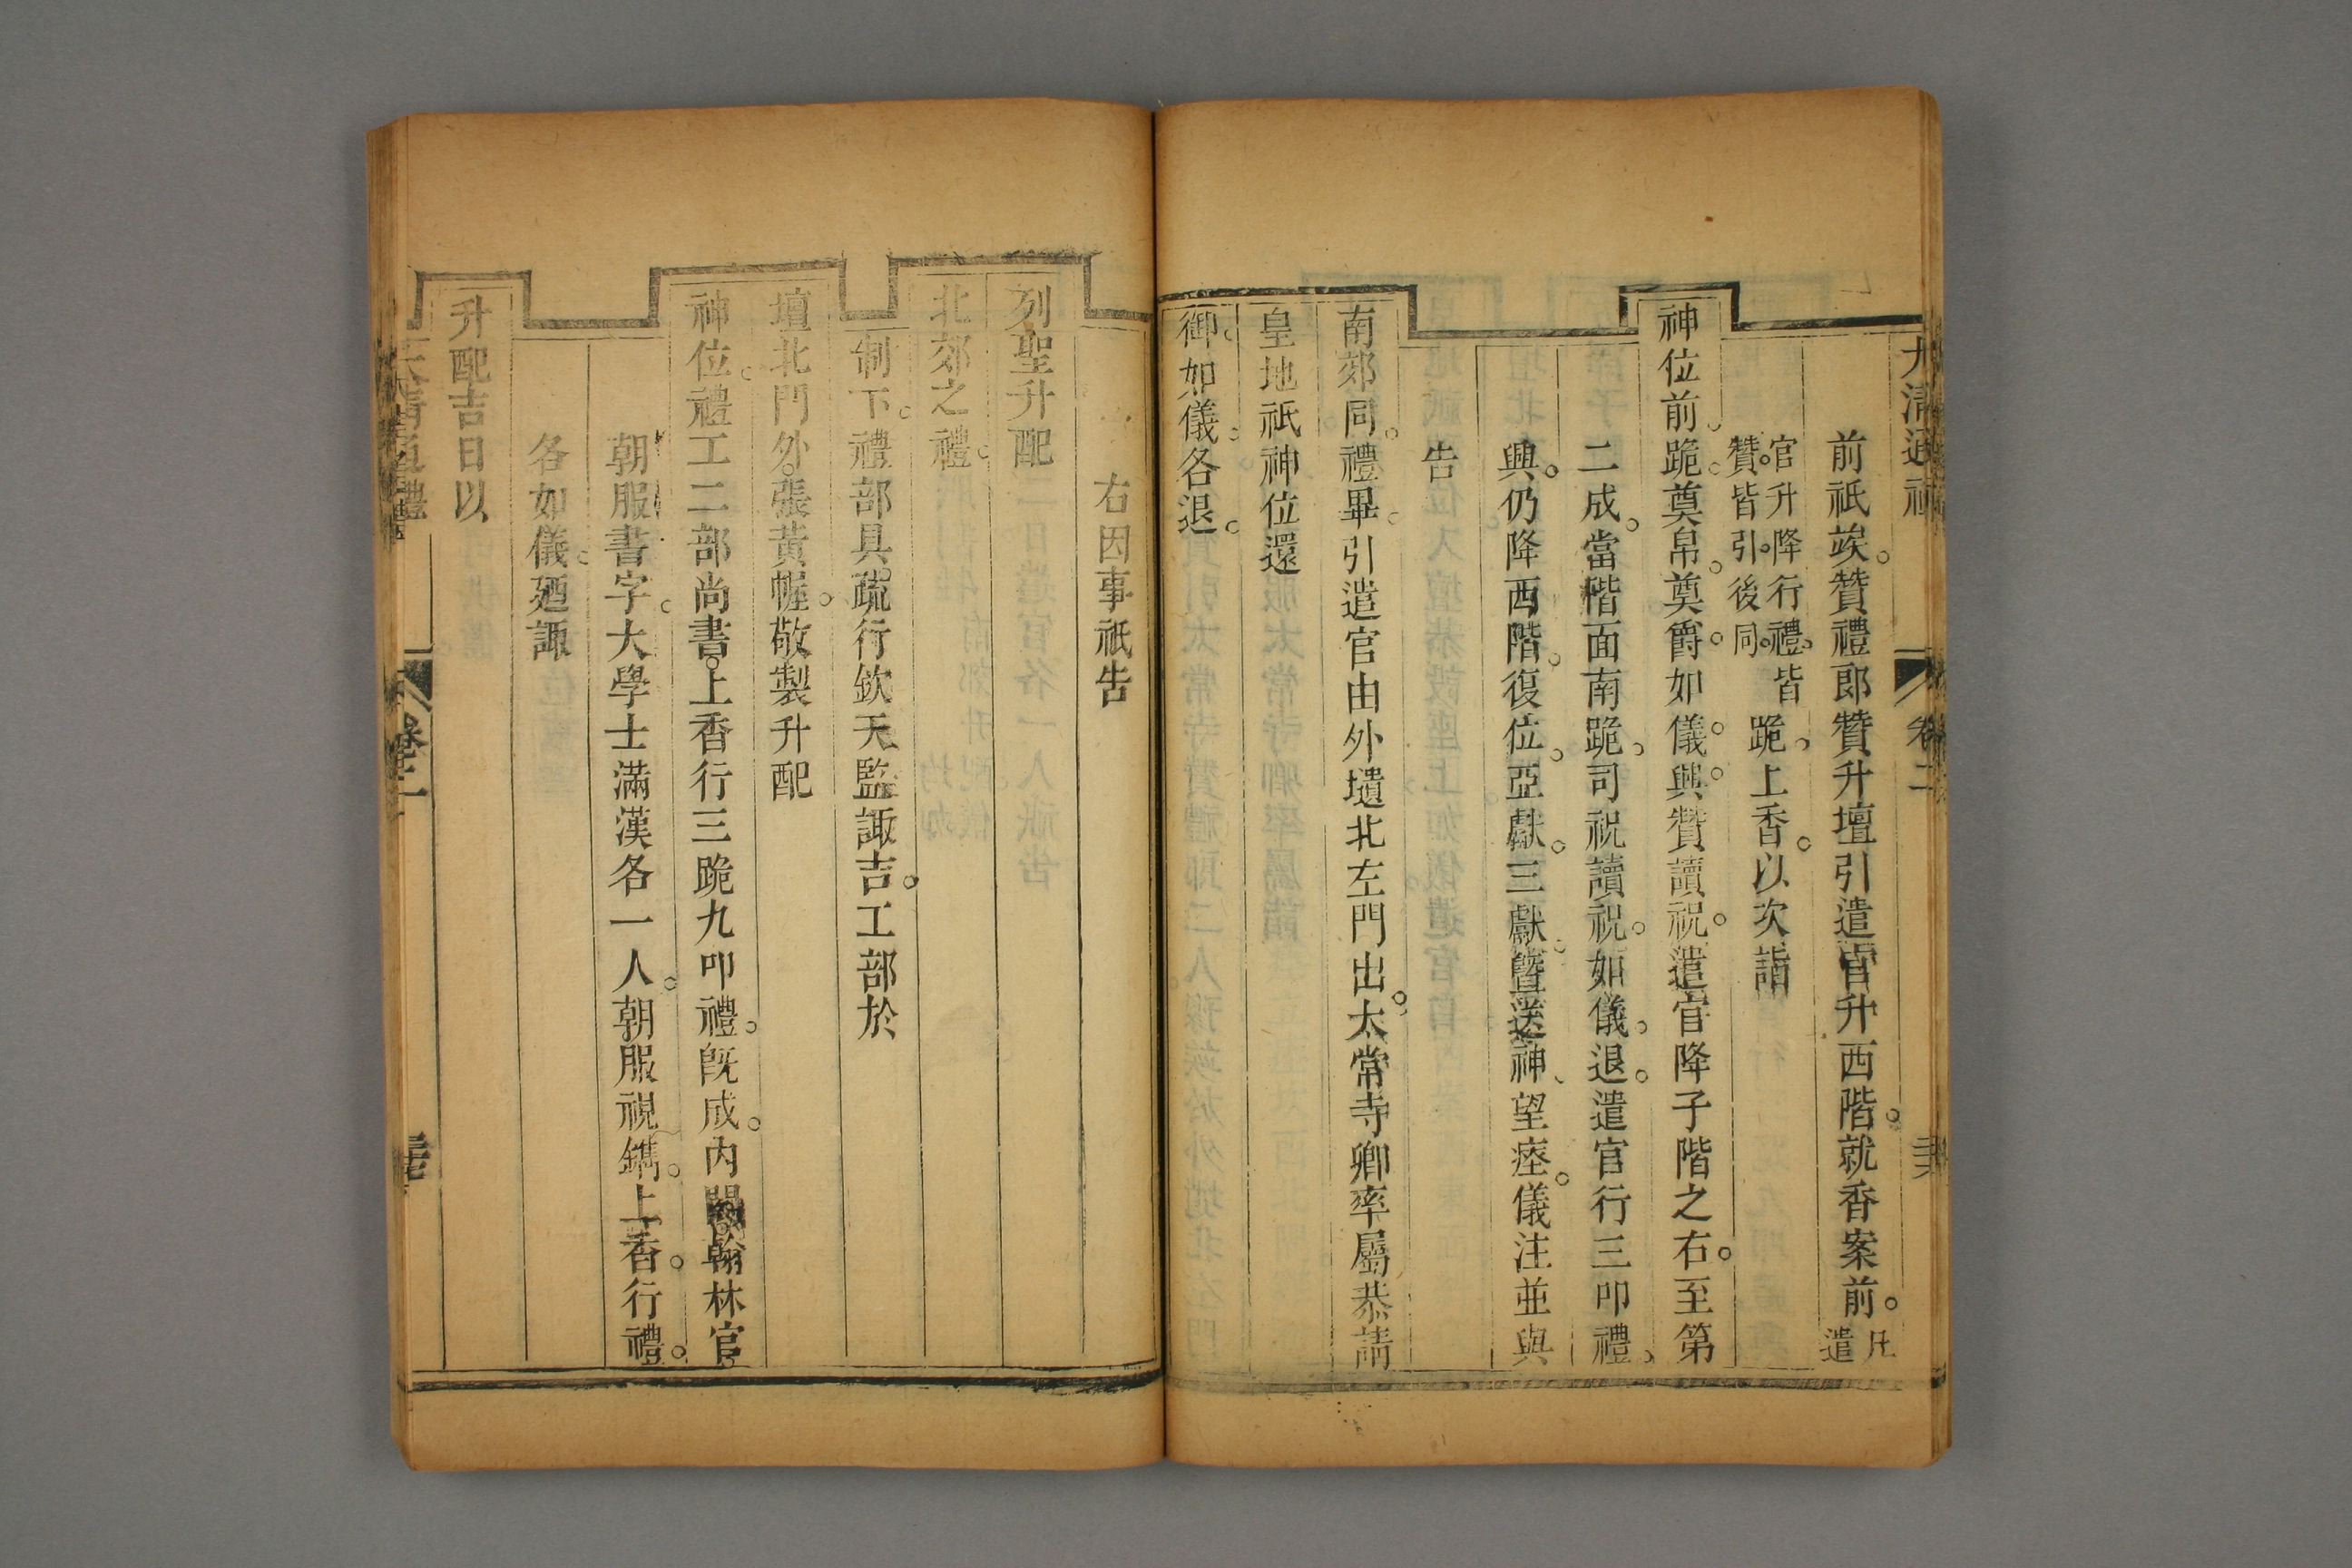 大清通禮 卷二
前祇竢。贊禮郎贊升壇引遣官升西階。就香案前。凡遣
官升降行禮。皆贊。皆引。後同。跪。上香。以次詣
神位前跪。奠帛。奠爵。如儀。興。贊讀祝。遣官降子階之右。至第
二成。當階面南跪。司祝讀祝。如儀。退。遣官行三叩禮。
興。仍降西階。復位。亞獻。三獻。曁送神、望瘞。儀注並與
告
南郊同。禮畢。引遣官由外壝北左門出。太常寺卿率屬恭請
皇地祇神位還
御。如儀。各退。
右因事祇告
列聖升配
北郊之禮。
制下。禮部具疏。行欽天監諏吉。工部於
壇北門外。張黃幄。敬製升配
神位。禮工二部尚書。上香行三跪九叩禮。旣成。內閣翰林官
朝服書字。大學士滿漢各一人。朝服視鐫。上香。行禮。
各如儀。廼諏
升配吉日以
大清通禮 卷二